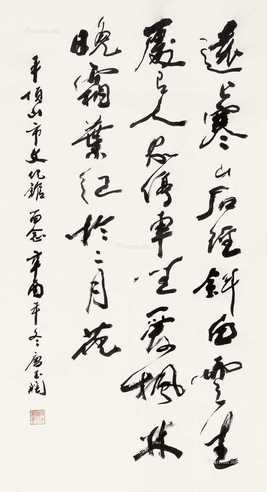 遠上寒山石徑斜白雲生
處有人家停車坐愛楓林
晚霜葉紅於二月花
平頂山市文化館留念辛酉年冬